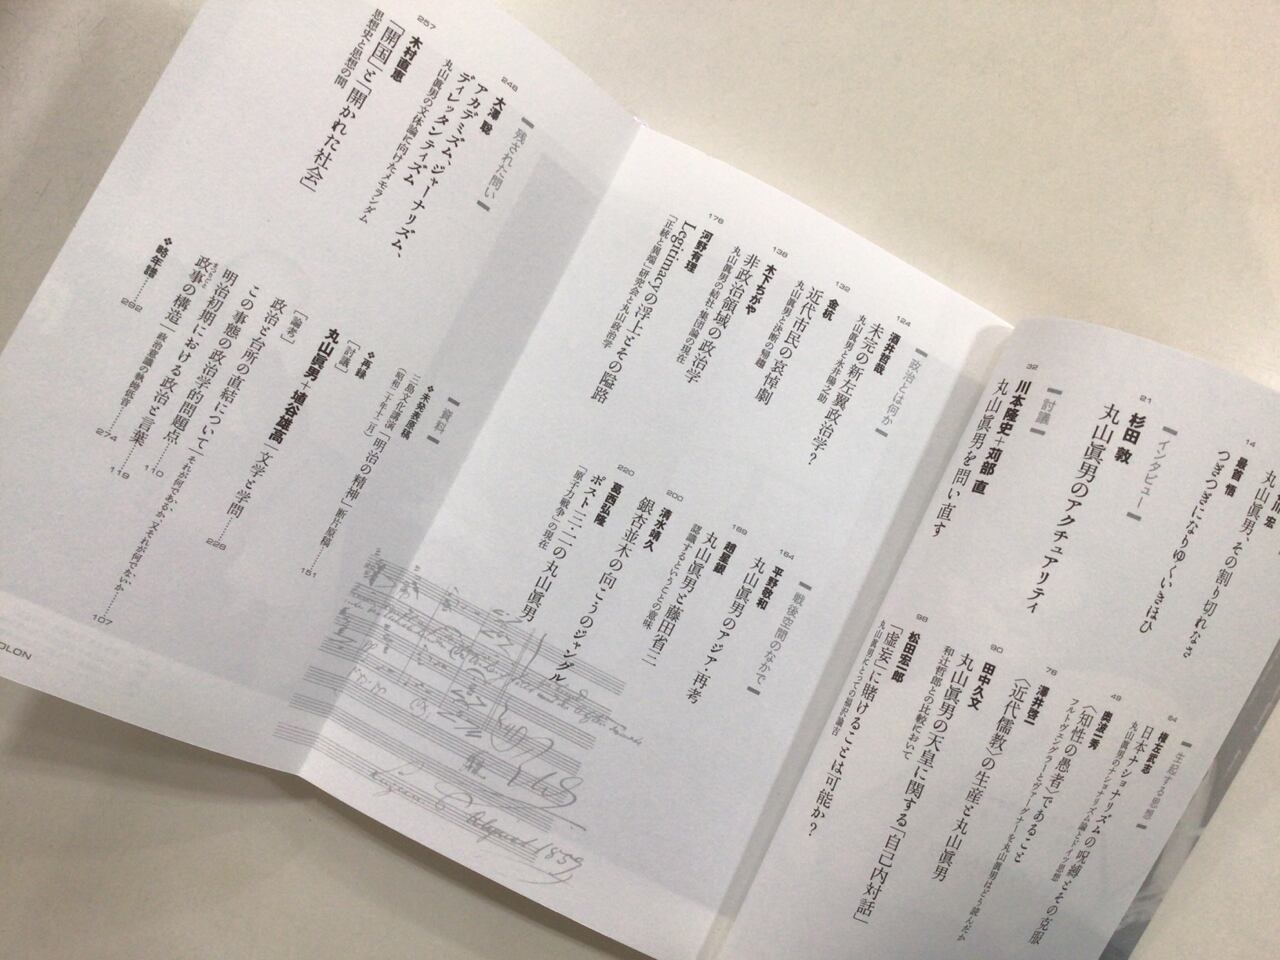 丸山眞男、その割り切れなさ
14
最首 悟
つぎつぎになりゆくいきほひ
インタビュー
21
杉田 敦
丸山眞男のアクチュアリティ
討議
32
川本隆史+苅部 直
丸山眞男を問い直す
生起する思想
64
権左武志
日本ナショナリズムの呪縛とその克服
丸山眞男のナショナリズム論とドイツ思想
49
奥波一秀
〈知性の愚者〉であること
フルトヴェングラーとヴァーグナーを丸山眞男はどう読んだか
76
澤井啓一
〈近代儒教〉の生産と丸山眞男
90
田中久文
丸山眞男の天皇に関する「自己内対話」
和辻哲郎との比較において
98
松田宏一郎
「虚妄」に賭けることは可能か?
丸山眞男にとっての福沢諭吉
政治とは何か
124
酒井哲哉
未完の新左翼政治学?
丸山眞男と永井陽之助
132
金杭
近代市民の哀悼劇
丸山眞男と決断の帰趨
138
木下ちがや
非政治領域の政治学
丸山眞男の結社・集団論の現在
176
河野有理
Legitimacyの浮上とその隘路
「正統と異端」研究会と丸山政治学
戦後空間のなかで
184
平野敬和
丸山眞男のアジア・再考
189
趙星銀
丸山眞男と藤田省三
認識するということの意味
200
清水靖久
銀杏並木の向こうのジャングル
220
葛西弘隆
ポスト三・一一の丸山眞男
「原子力戦争」の現在
残された問い
248
大澤 聡
アカデミズム、ジャーナリズム、
ディレッタンティズム
丸山眞男の文体論に向けたメモランダム
257
木村直恵
「開国」と「開かれた社会」
思想史と思想の間
資料
❖未発表原稿
三島文化講演「明治の精神」断片原稿……151
[昭和二十年十二月]
❖再録
[討議]
丸山眞男+埴谷雄高 文学と学問……228
[論考]
政治と台所の直結について……110
この事態の政治学的問題点 それが何であるか、又それが何でないか……107
明治初期における政治と言葉……119
政事の構造 政治意識の執拗低音……274
まつりごと
❖略年譜……292
OLON